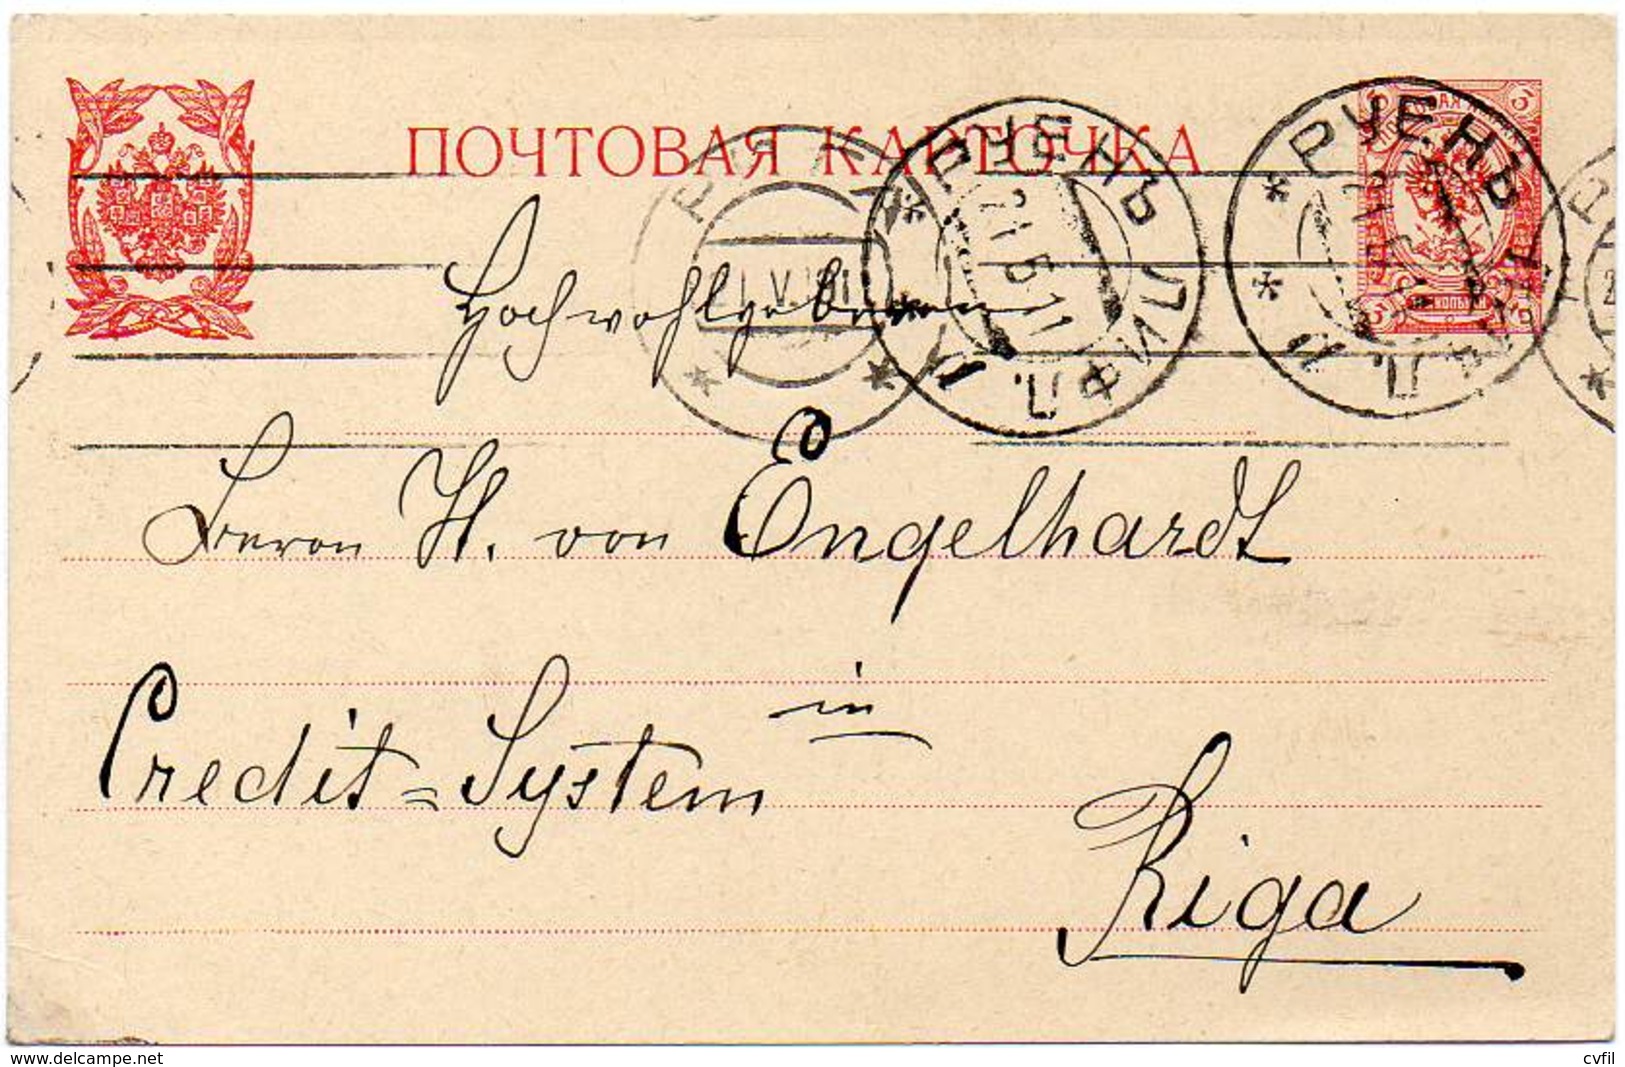 ПОЧТОВАЯ КАРТОЧКА
РУЕНЪ ЛИФЛ.
21 5 11
РУЕНЪ
21.V.11
Hochwohlgeboren
Herrn H. von Engelhardt
Credit=System
in
Riga
www.delcampe.net
cvfil